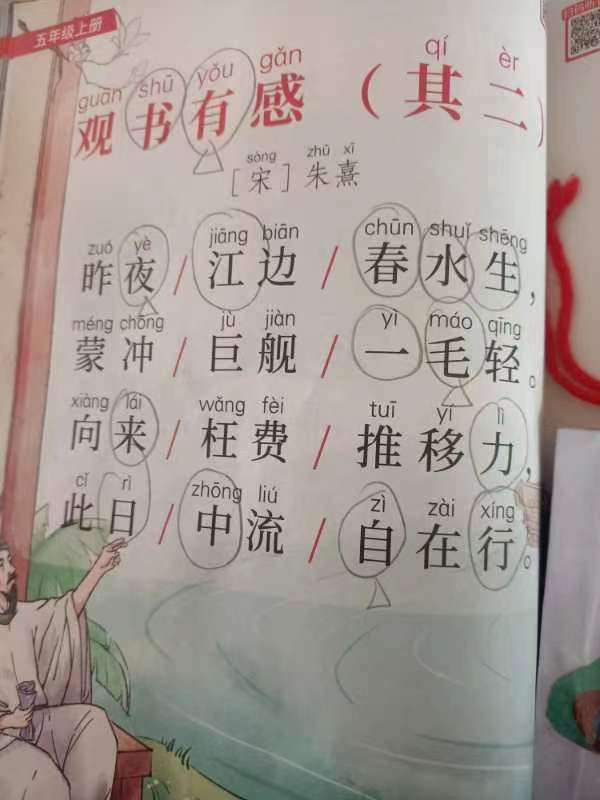 五年级上册
guān shū yǒu gǎn qí èr
观书有感（其二）
sòng zhū xī
［宋］朱熹
zuó yè jiāng biān chūn shuǐ shēng
昨夜/江边/春水生，
méng chōng jù jiàn yì máo qīng
蒙冲/巨舰/一毛轻。
xiàng lái wǎng fèi tuī yí lì
向来/枉费/推移力，
cǐ rì zhōng liú zì zài xíng
此日/中流/自在行。